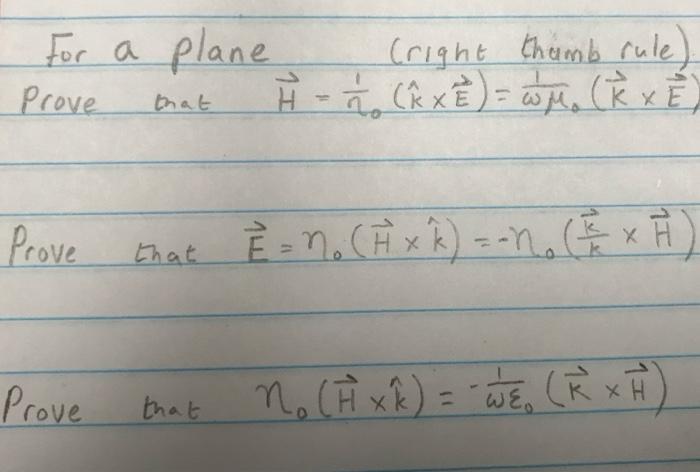 For a plane (right thumb rule)
Prove that H⃗ = 1/η₀ (k̂ × E⃗) = 1/ωμ₀ (k⃗ × E⃗)
Prove that E⃗ = η₀ (H⃗ × k̂) = -η₀ (k⃗/k × H⃗)
Prove that η₀ (H⃗ × k̂) = -1/ωε₀ (k⃗ × H⃗)